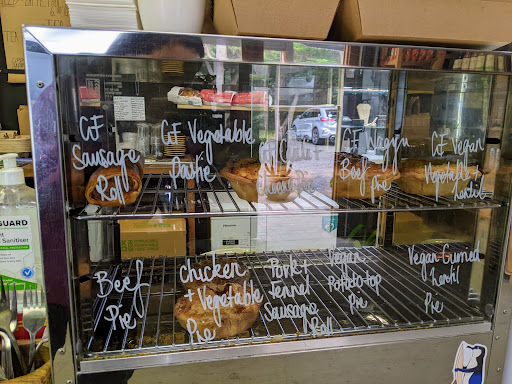 GF
Sausage
Roll
GF Vegetable
Pastie
GF
GF Wagyu
Beef
Pie
GF Vegan
Vegetable +
Lentil
Beef
Pie
Chicken
+ Vegetable
Pie
Pork +
Fennel
Sausage
Roll
Vegan
Potato-top
Pie
Vegan Curried
Lentil
Pie
GUARD
Sanitiser